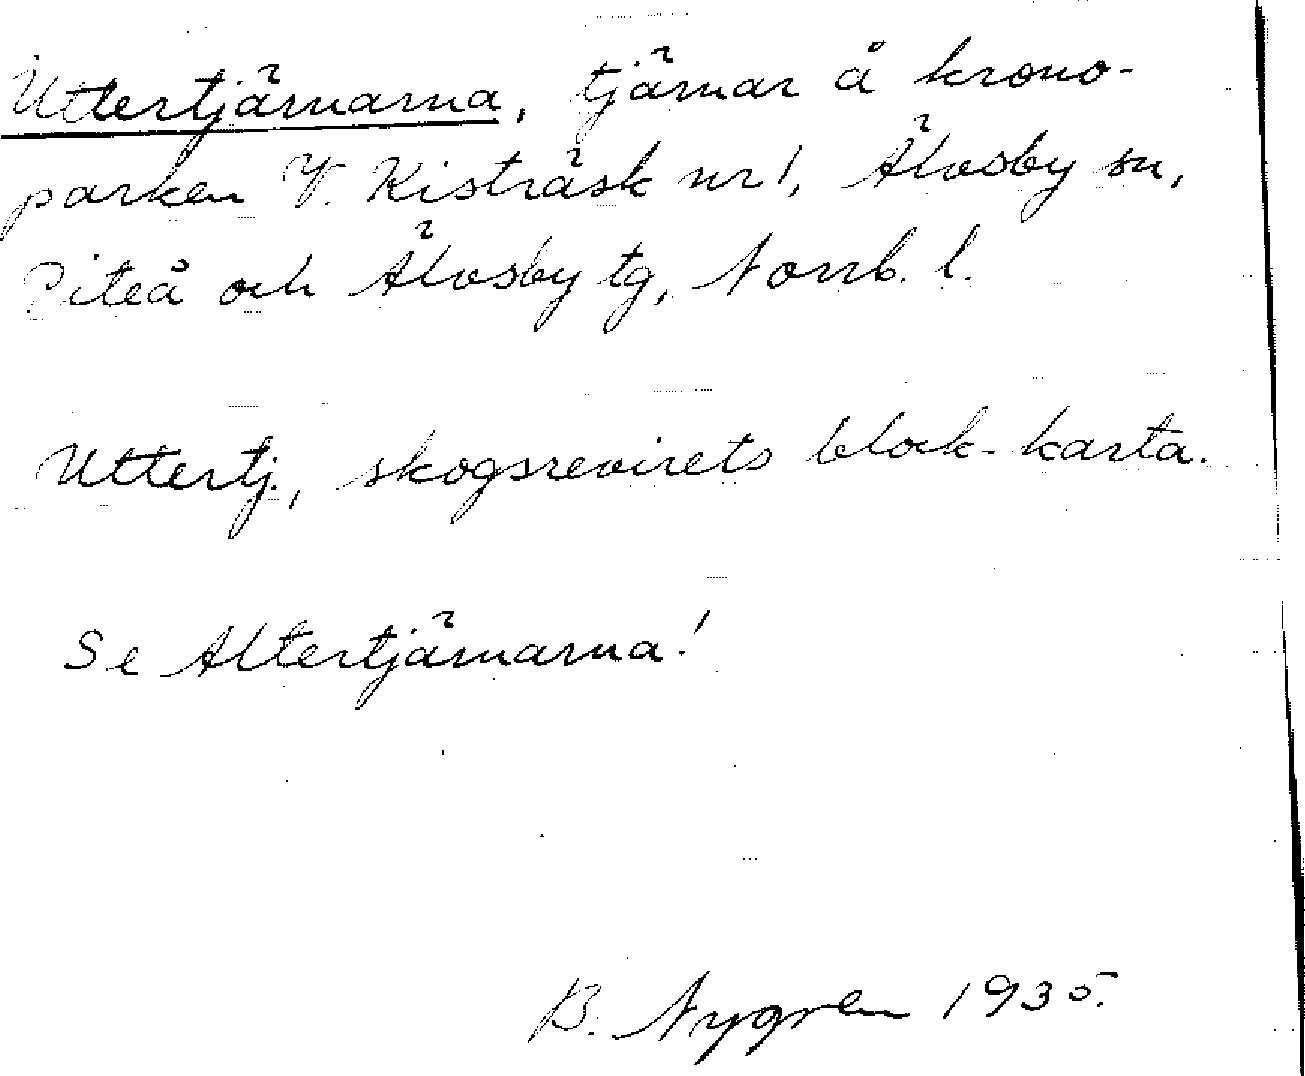 Uttertjärnarna, tjärnar å krono-
parken V. Kisträsk nr 1, Älvsby sn,
Piteå och Älvsby tg, Norrb. l.
Uttertj., skogsrevirets block-karta.
Se Altertjärnarna!
B. Nygren 1935.